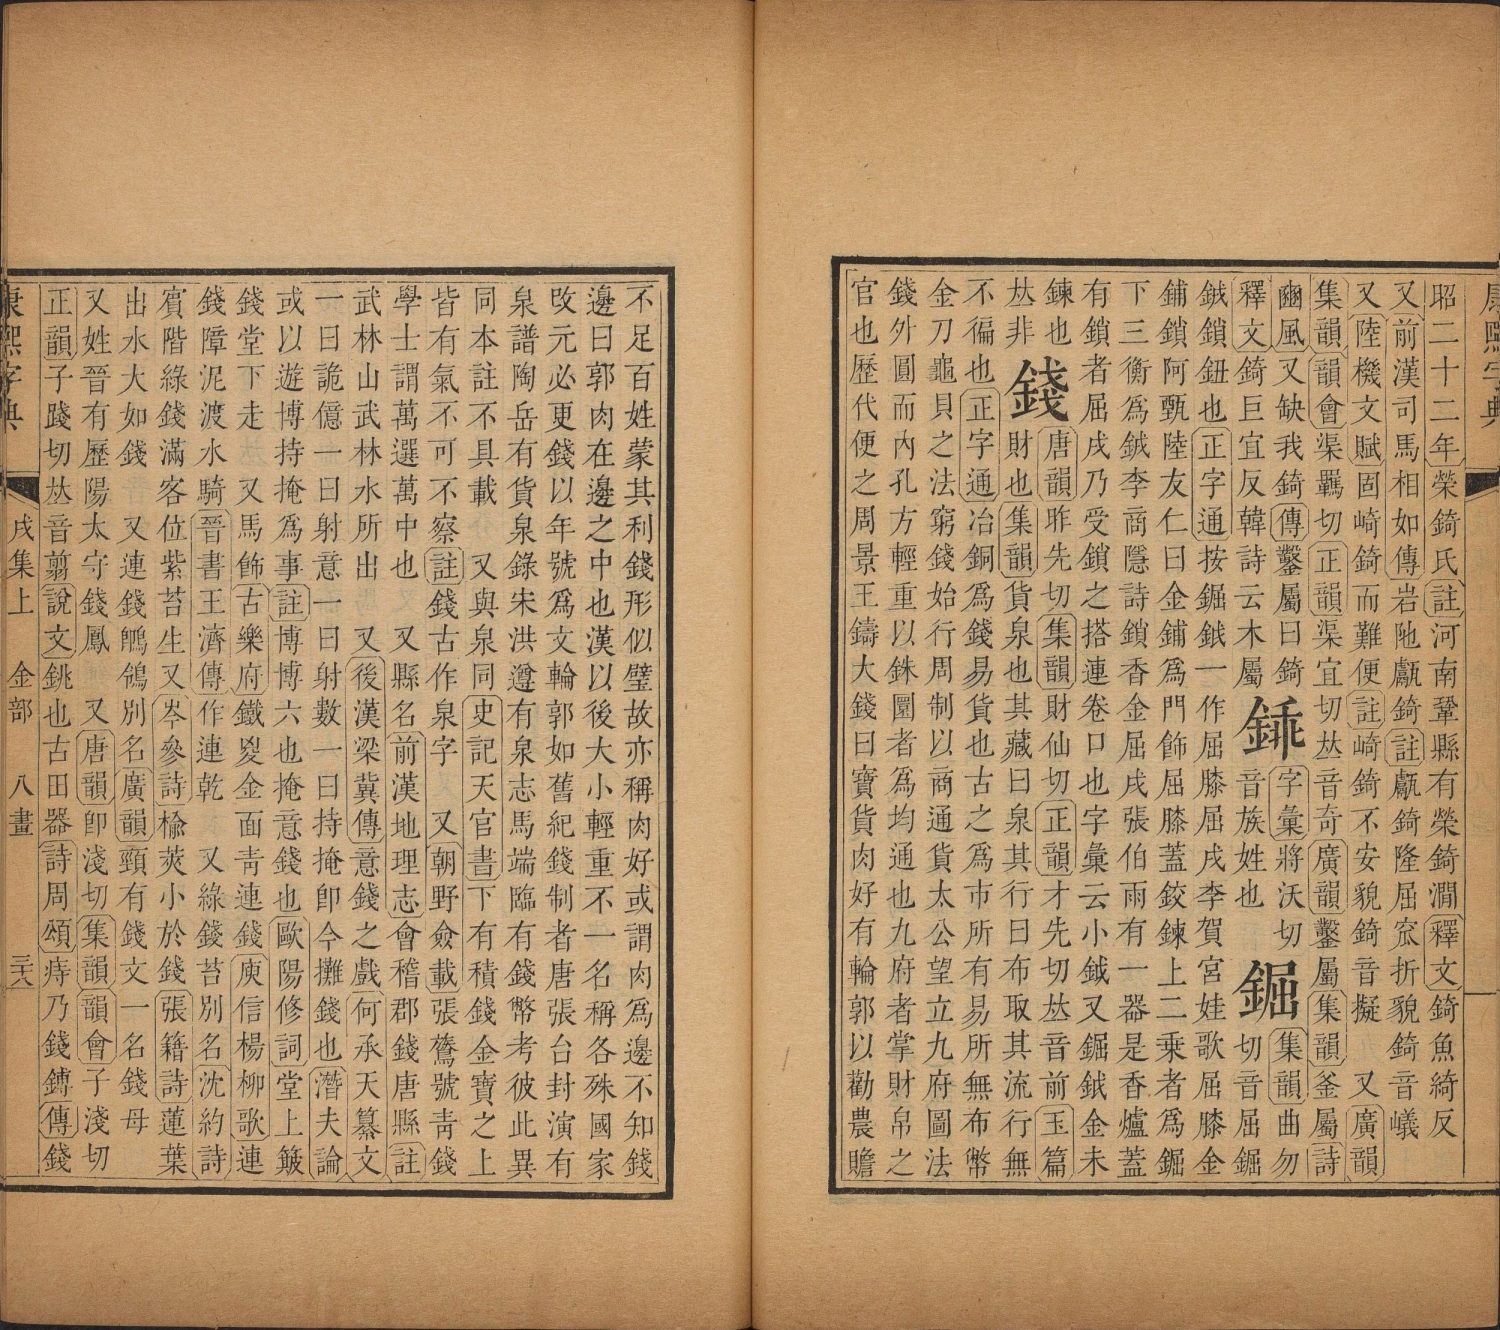 康熙字典
昭二十二年榮錡氏註河南鞏縣有榮錡澗釋文錡魚綺反
又前漢司馬相如傳岩阤甗錡註甗錡隆屈窊折貌錡音蟻
又陸機文賦固崎錡而難便註崎錡不安貌錡音擬　又廣韻
集韻韻會渠羈切正韻渠宜切𠀤音奇廣韻鑿屬集韻釜屬詩
豳風又缺我錡傳鑿屬曰錡
釋文錡巨宜反韓詩云木屬
字彙將沃切
音族姓也
集韻曲勿
切音屈
鉞鎖鈕也正字通按鉞一作屈膝屈戌李賀宮娃歌屈膝金
鋪鎖阿甄陸友仁曰金鋪爲門飾屈膝蓋鉸鍊上二乗者爲
下三衡爲鉞李商隱詩鎖香金屈戌張伯雨有一器是香爐蓋
有鎖者屈戌乃受鎖之搭連卷口也字彙云小鉞又鉞金未
鍊也
𠀤非
錢
唐韻昨先切集韻財仙切正韻才先切𠀤音前玉篇
財也集韻貨泉也其藏曰泉其行曰布取其流行無
不徧也正字通冶銅爲錢易貨也古之爲市所有易所無布幣
金刀龜貝之法窮錢始行周制以商通貨太公望立九府圜法
錢外圓而內孔方輕重以銖圜者爲均通也九府者掌財帛之
官也歷代便之周景王鑄大錢曰寶貨肉好有輪郭以勸農贍
不足百姓蒙其利錢形似璧故亦稱肉好或謂肉爲邊不知錢
邊曰郭肉在邊之中也漢以後大小輕重不一名稱各殊國家
改元必更錢以年號爲文輪郭如舊紀錢制者唐張台封演有
泉譜陶岳有貨泉錄宋洪遵有泉志馬端臨有錢幣考彼此異
同本註不具載　又與泉同史記天官書下有積錢金寶之上
皆有氣不可不察註錢古作泉字　又朝野僉載張鷟號靑錢
學士謂萬選萬中也　又縣名前漢地理志會稽郡錢唐縣註
武林山武林水所出　又後漢梁冀傳意錢之戲何承天纂文
一曰詭億一曰射意一曰射數一曰持掩卽今攤錢也潛夫論
或以遊博持掩爲事註博博六也掩意錢也歐陽修詞堂上簸
錢堂下走　又馬飾古樂府鐵㚇金面靑連錢庾信楊柳歌連
錢障泥渡水騎晉書王濟傳作連乾　又綠錢苔別名沈約詩
賓階綠錢滿客位紫苔生又岑參詩楡莢小於錢張籍詩蓮葉
出水大如錢　又連錢鶺鴒別名廣韻頸有錢文一名錢母
又姓晉有歷陽太守錢鳳　又唐韻卽淺切集韻韻會子淺切
正韻子踐切𠀤音翦說文銚也古田器詩周頌庤乃錢鎛傳錢
康熙字典　戌集上　金部　八畫　三六